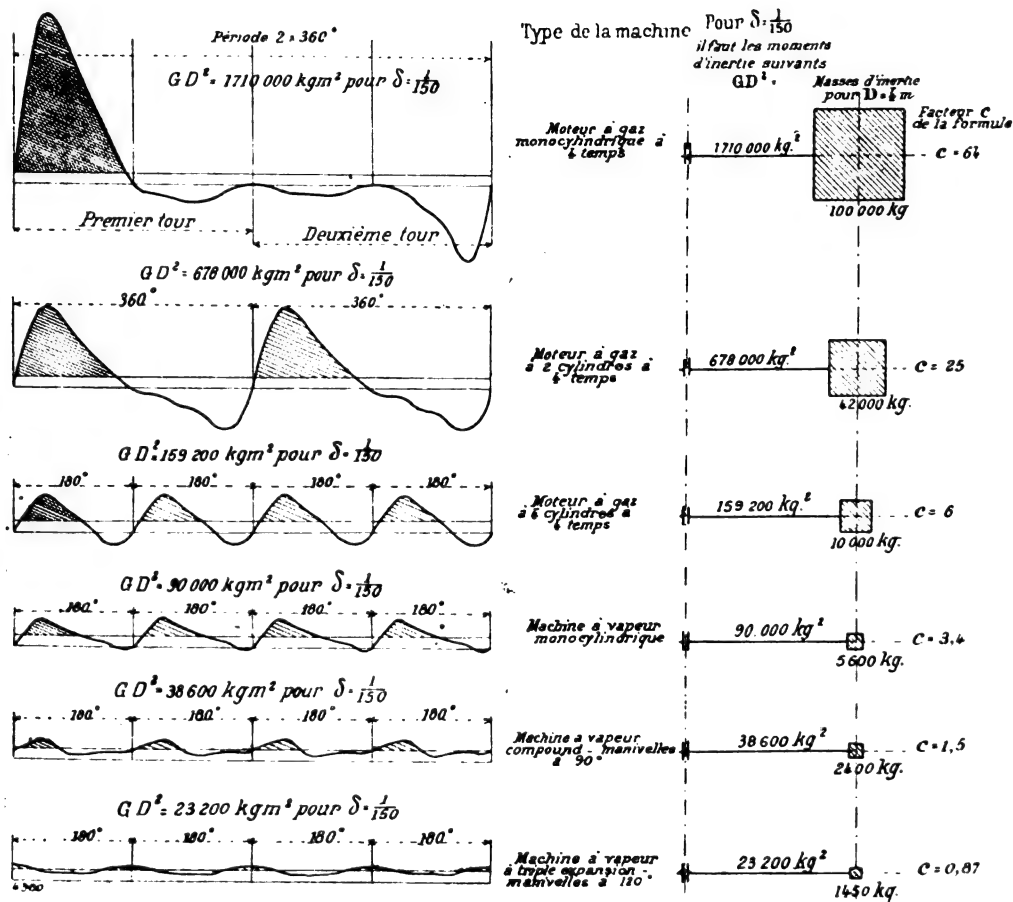 Période 2 × 360°
GD² = 1710 000 kgm² pour δ = 1/150
Premier tour
Deuxième tour
GD² = 678 000 kgm² pour δ = 1/150
360° 360°
GD² = 159 200 kgm² pour δ = 1/150
180° 180° 180° 180°
GD² = 90 000 kgm² pour δ = 1/150
180° 180° 180° 180°
GD² = 38 600 kgm² pour δ = 1/150
180° 180° 180° 180°
GD² = 23 200 kgm² pour δ = 1/150
180° 180° 180° 180°
Type de la machine
Pour δ = 1/150
il faut les moments
d'inertie suivants
GD² =
Masses d'inertie
pour D = 4 m
Facteur C
de la formule
Moteur à gaz
monocylindrique à
4 temps
1710 000 kg.²
100 000 kg
C = 64
Moteur à gaz
à 2 cylindres à
4 temps
678 000 kg.²
42 000 kg.
C = 25
Moteur à gaz
cylindres à
4 temps
159 200 kg.²
10 000 kg.
C = 6
Machine à vapeur
monocylindrique
90.000 kg²
5 600 kg.
C = 3,4
Machine à vapeur
compound - manivelles
à 90°
38 600 kg²
2400 kg.
C = 1,5
Machine à vapeur
à triple expansion -
manivelles à 120°
23 200 kg²
1450 kg.
C = 0,87